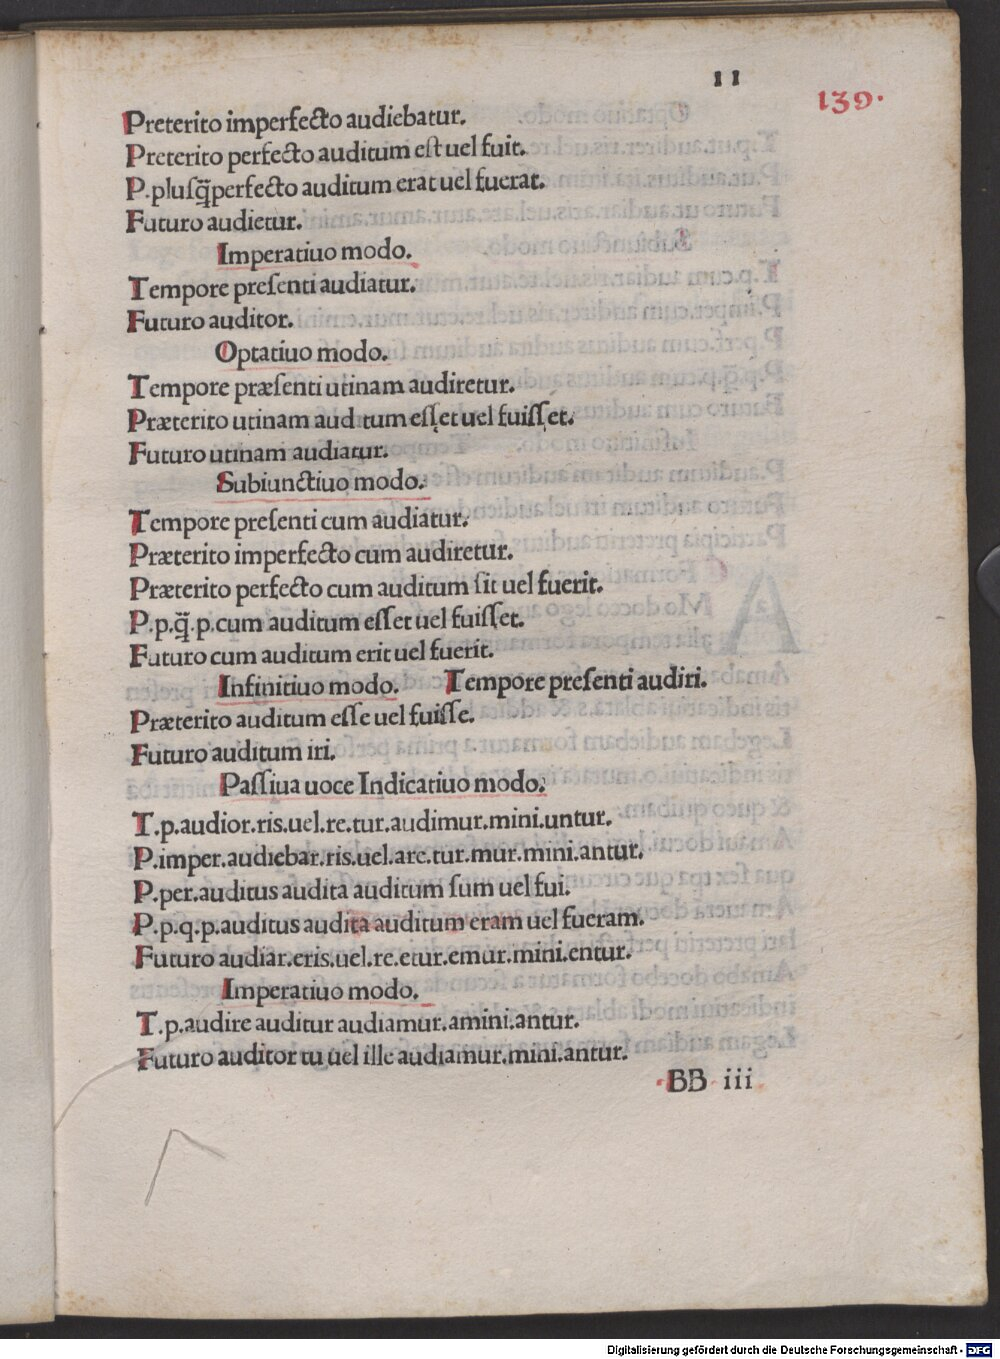 11
139.
Preterito imperfecto audiebatur.
Preterito perfecto auditum eſt uel fuit.
P.pluſq̃perfecto auditum erat uel fuerat.
Futuro audietur.
Imperatiuo modo.
Tempore preſenti audiatur.
Futuro auditor.
Optatiuo modo.
Tempore præſenti utinam audiretur.
Præterito utinam aud tum eſſet uel fuiſſet.
Futuro utinam audiatur.
Subiunctiuo modo.
Tempore preſenti cum audiatur.
Præterito imperfecto cum audiretur.
Præterito perfecto cum auditum ſit uel fuerit.
P.p.q̃.p.cum auditum eſſet uel fuiſſet.
Futuro cum auditum erit uel fuerit.
Infinitiuo modo. Tempore preſenti audiri.
Præterito auditum eſſe uel fuiſſe.
Futuro auditum iri.
Paſſiua uoce Indicatiuo modo.
T.p.audior.ris.uel.re.tur.audimur.mini.untur.
P.imper.audiebar.ris.uel.are.tur.mur.mini.antur.
P.per.auditus audita auditum ſum uel fui.
P.p.q.p.auditus audita auditum eram uel fueram.
Futuro audiar.eris.uel.re.etur.emur.mini.entur.
Imperatiuo modo.
T.p.audire auditur audiamur.amini.antur.
Futuro auditor tu uel ille audiamur.mini.antur.
BB iii
Digitalisierung gefördert durch die Deutsche Forschungsgemeinschaft - DFG